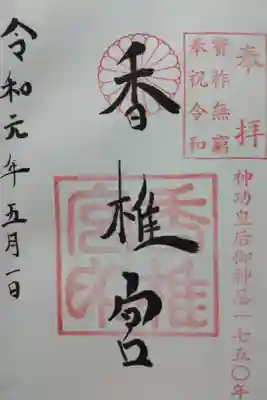 奉拝
寳祚無窮
奉祝令和
神功皇后御神忌一七五〇年
香椎宮
香椎
宮印
令和元年五月一日